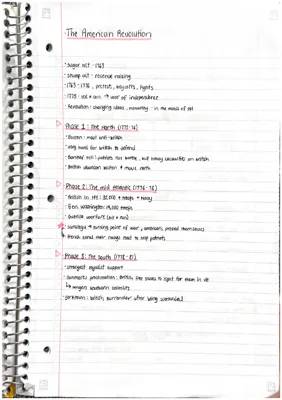 The American Revolution
· Sugar act - 1763
· Stamp act - revenue raising
· 1763 - 1776, protest, boycotts, fights
· 1775 - war of independence
· Revolution: changing ideas, in the minds of
Phase 1: The North (1775-76)
· Boston: most anti-British
· very hard for British to defend
· Bunker hill: patriots lose battle, but heavy casualties on British
· British abandon Boston + move north
Phase 2: The mid Atlantic (1776-78)
· British in NY: 32,000 troops + navy
· Gen. Washington: 19,000 troops
· Guerilla warfare (hit + run)
· Saratoga → turning point of war, americans proved themselves
French send their troops to help patriots
Phase 3: The South (1778-81)
· strongest loyalist support
· Dunmore's proclamation: British free slaves to fight for them in
↳ angers southern colonists
· Yorktown: British surrender after being surrounded